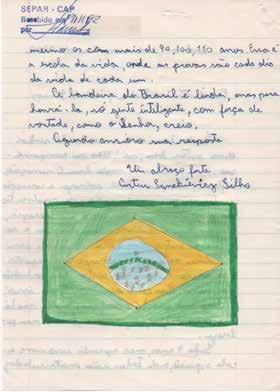 SEPAR - CAP
Recebido em
por
mesmo os com mais de 90, 100, 110 anos. Essa é
a escola da vida, onde as provas são cada dia
da vida de cada um.
A bandeira do Brasil é linda, mas para
honrá-la, só gente inteligente, com força de
vontade, como o Senhor, creio.
Aguardo ansioso sua resposta
Um abraço forte
Filho